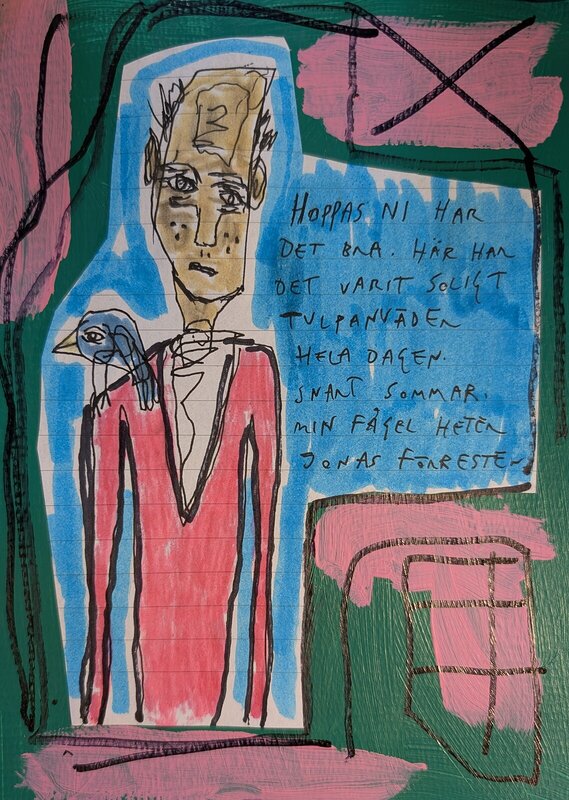 HOPPAS NI HAR
DET BRA. HÄR HAR
DET VARIT SOLIGT
TULPANVÄDER
HELA DAGEN.
SNART SOMMAR.
MIN FÅGEL HETER
JONAS FORRESTER